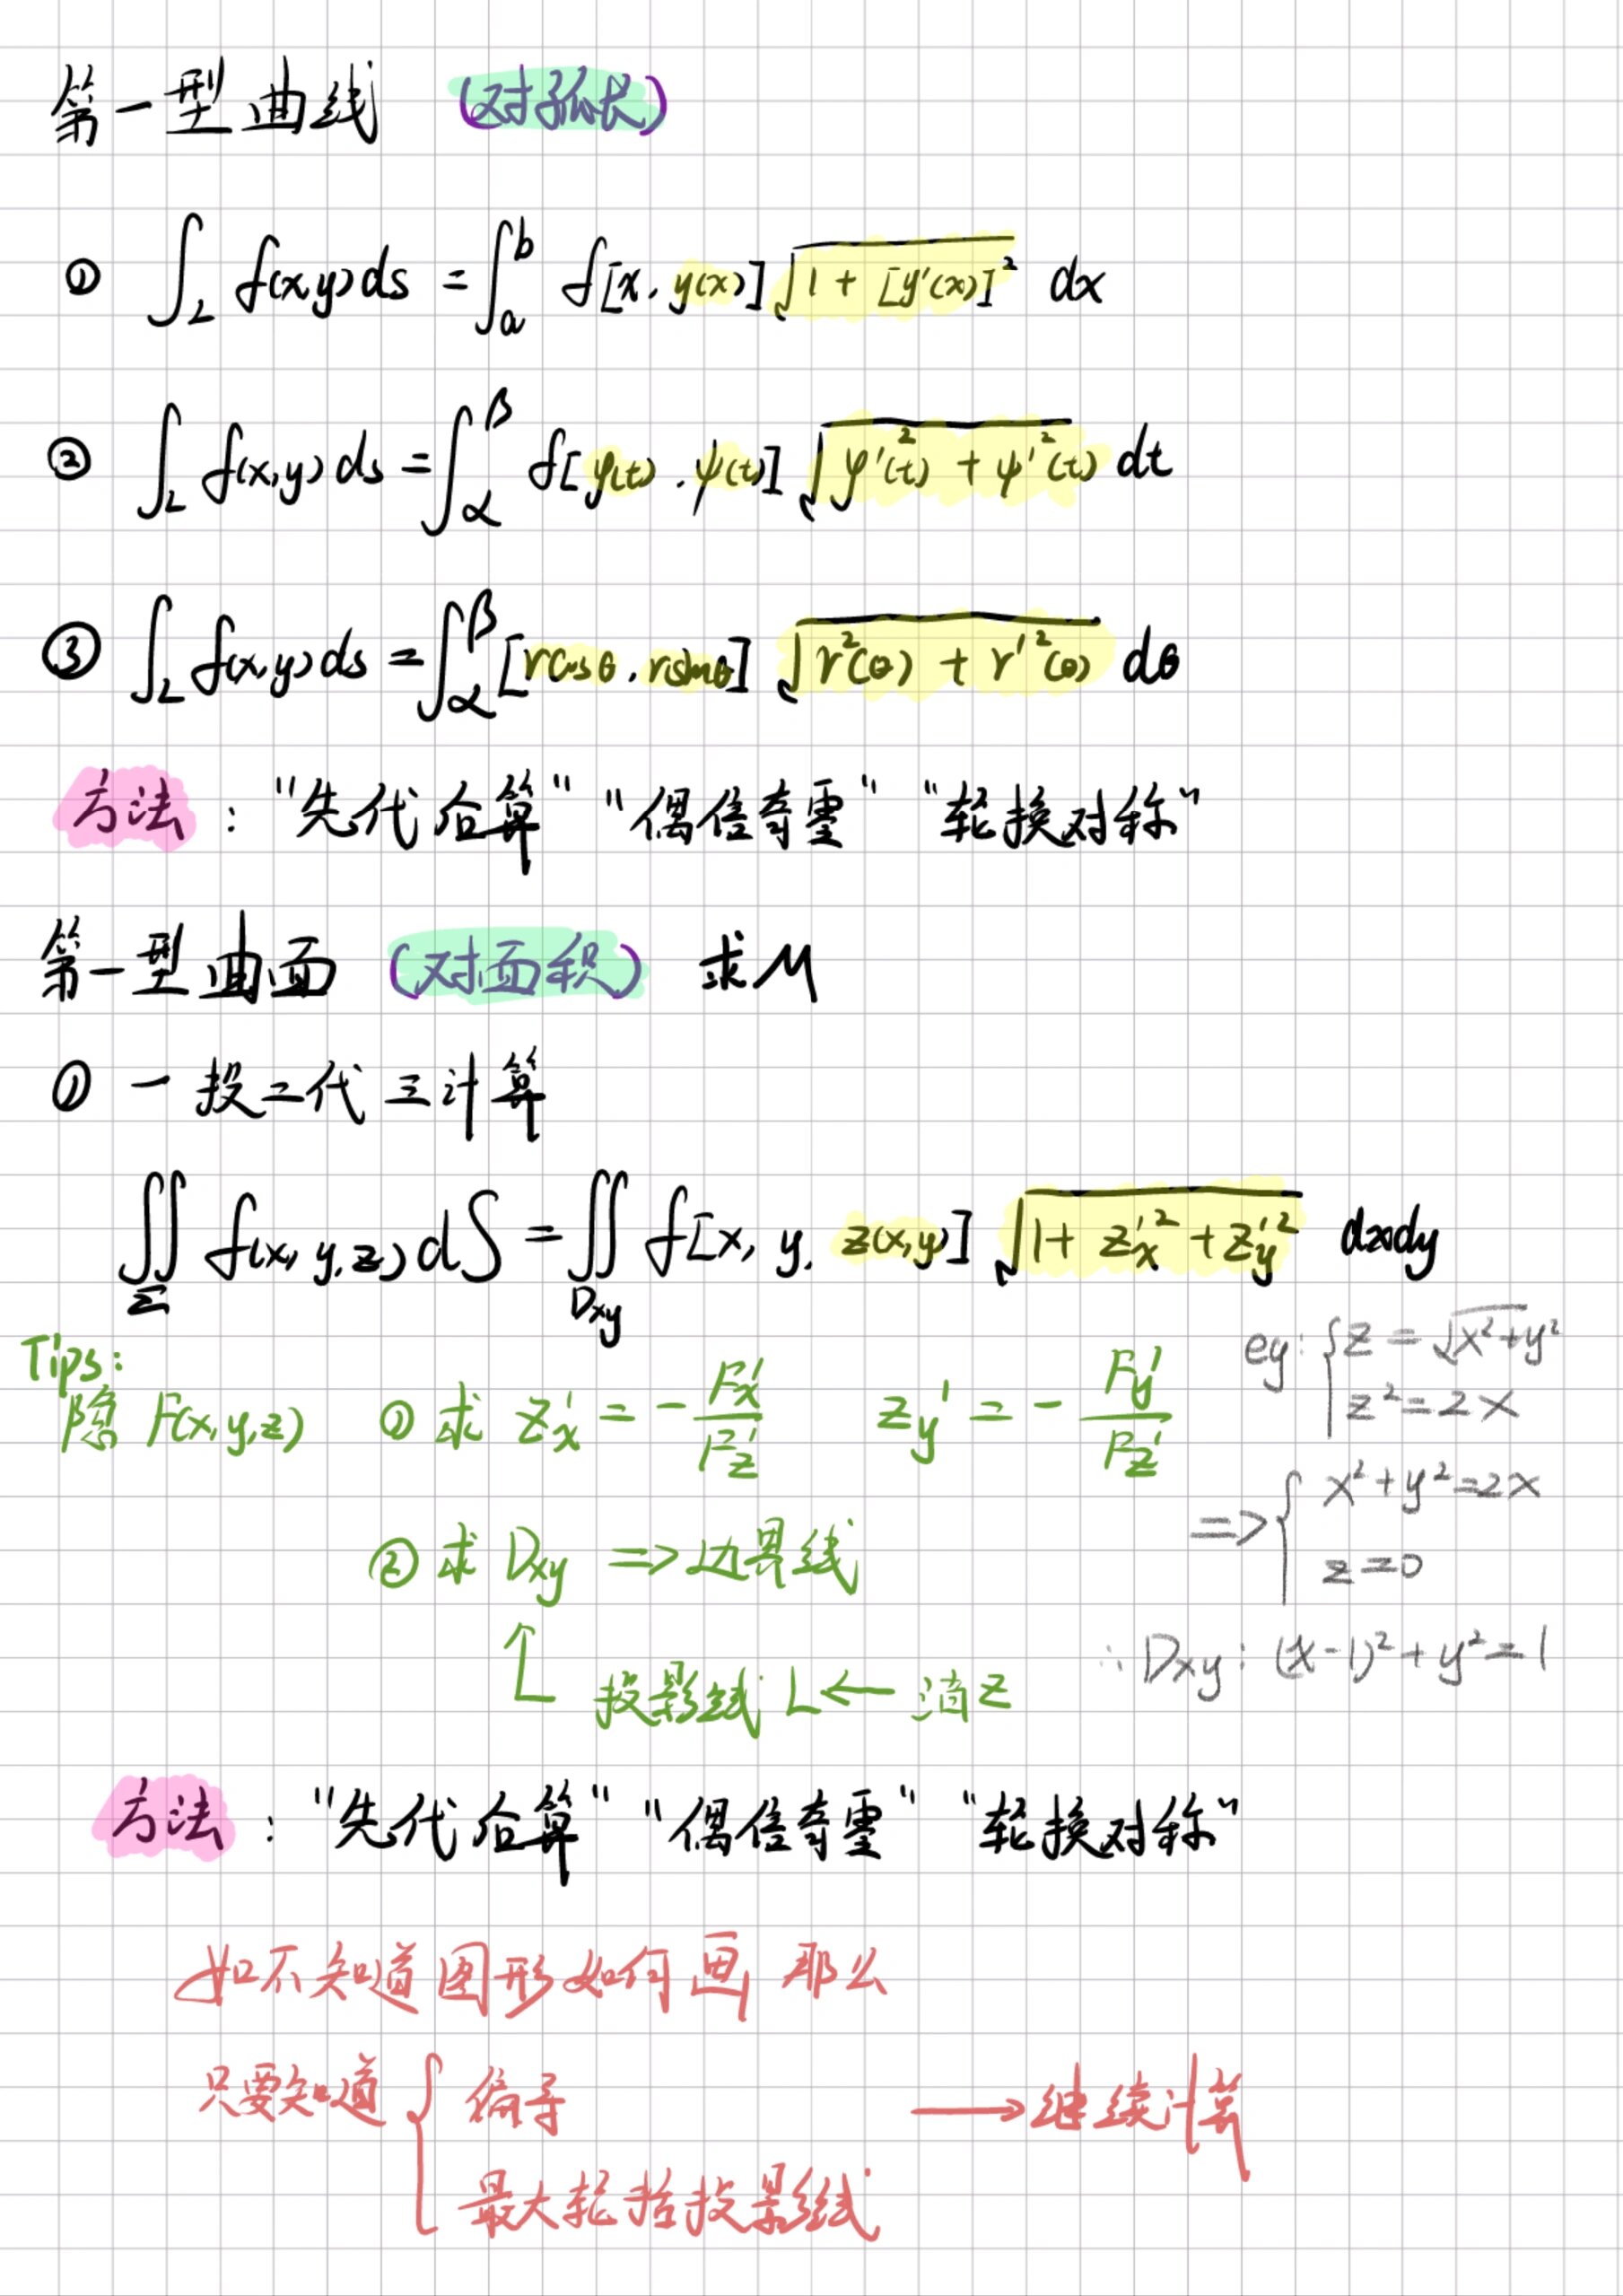 第一型曲线 (对弧长)
① ∫_L f(x,y)ds = ∫_a^b f[x, y(x)] √(1 + [y'(x)]²) dx
② ∫_L f(x,y)ds = ∫_α^β f[φ(t), ψ(t)] √(φ'²(t) + ψ'²(t)) dt
③ ∫_L f(x,y)ds = ∫_α^β [rcosθ, rsinθ] √(r²(θ) + r'²(θ)) dθ
方法："先代后算" "偶倍奇零" "轮换对称"
第一型曲面 (对面积) 求M
① 一投二代三计算
∬_Σ f(x,y,z)dS = ∬_Dxy f[x, y, z(x,y)] √(1 + z'x² + z'y²) dxdy
Tips:
隐 F(x,y,z) ① 求 z'x = -F'x/F'z zy' = -F'y/F'z
② 求 Dxy => 边界线
投影线 L ← 消z
eg: { z = √(x²+y²)
z² = 2x
=> { x²+y²=2x
z=0
∴ Dxy: (x-1)²+y²=1
方法："先代后算" "偶倍奇零" "轮换对称"
如不知道图形如何画 那么
只要知道 { 偏导 → 继续计算
最大轮括投影线